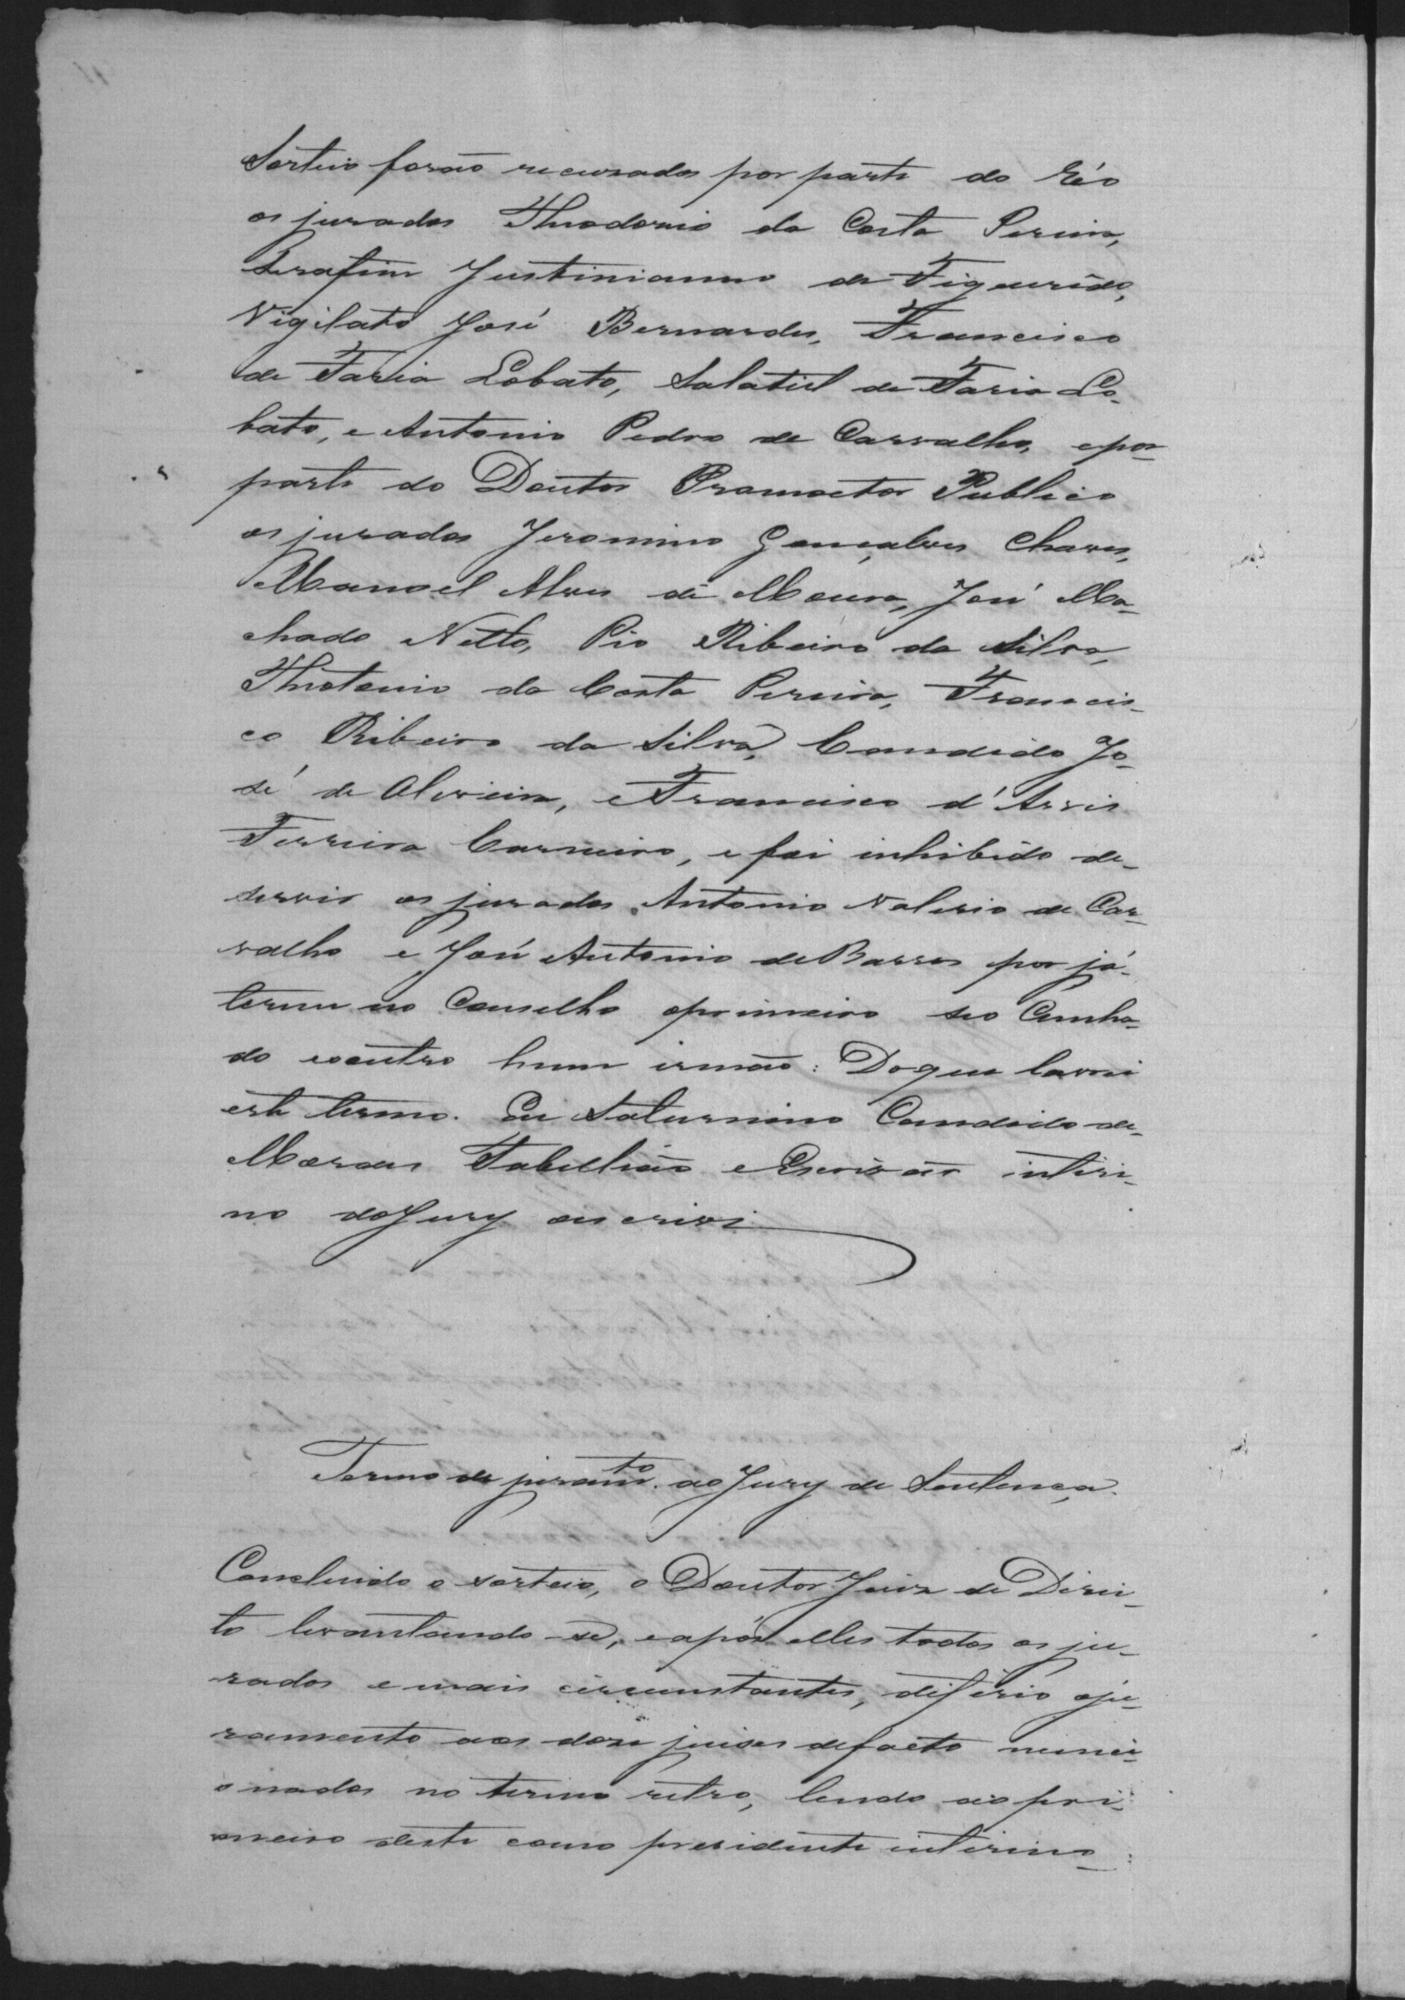 Sorteio forão recusados por parte do Réo
os jurados Theodorio da Costa Pereira,
Serafim Justinianno de Figueirêdo,
Vigilato José Bernardes, Francisco
de Faria Lobato, Salatiel de Faria Lo-
bato, e Antonio Pedro de Carvalho, e por
parte do Doutor Promoctor Publico
os jurados Jeronimo Gonçalves Chaves,
Manoel Alves de Moura, José Ma-
chado Netto, Pio Ribeiro da Silva,
Theotonio da Costa Pereira, Francis-
co Ribeiro da Silva, Candido Jo-
sé de Oliveira, e Francisco d'Assis
Ferreira Carneiro, e foi inhibido de-
servir os jurados Antonio Valerio de Car-
valho e José Antonio de Barros por já
terem no Conselho o primeiro seo Cunha-
do e o outro hum irmão: Do que lavrei
este termo. Eu Saturnino Candido de-
Moraes Tabellião e Escrivão interi-
no do Jury o escrivi
Termo de juramto. ao Jury de Sentença.
Concluido o sorteio, o Doutor Juiz de Direi-
to levantando-se, e após elles todos os ju-
rados e mais circumstantes, diferio o ju-
ramento aos doze juises de facto menci-
onados no termo retro, lendo ao pri-
meiro deste como presidente interino